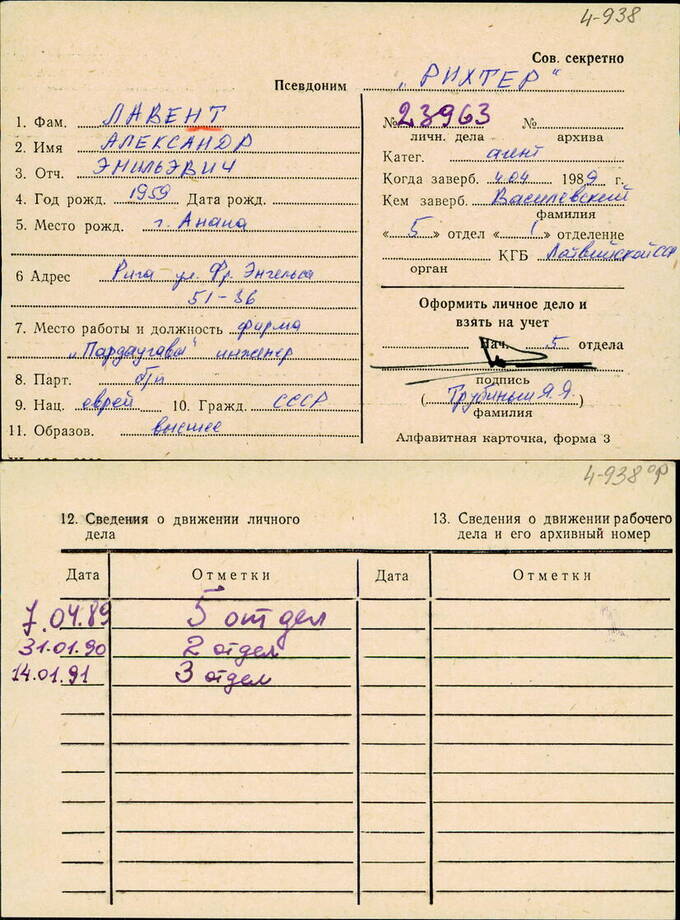 4-938
Сов. секретно
Псевдоним „РИХТЕР“
1. Фам. ЛАВЕНТ
2. Имя АЛЕКСАНДР
3. Отч. ЭМИЛЬЭВИЧ
4. Год рожд. 1959 Дата рожд.
5. Место рожд. г. Анапа
6 Адрес Рига ул. Фр. Энгельса
51-36
7. Место работы и должность фирма
„Пардаугава“ инженер
8. Парт. б/п
9. Нац. еврей 10. Гражд. СССР
11. Образов. высшее
№ 23963 №
личн. дела архива
Катег. агент
Когда заверб. 4.04 1989 г.
Кем заверб. Василевский
фамилия
«5» отдел «1» отделение
КГБ Латвийской ССР
орган
Оформить личное дело и
взять на учет
Нач. 5 отдела
подпись
(Трубиньш Я.Я.)
фамилия
Алфавитная карточка, форма 3
4-938 ор
12. Сведения о движении личного
дела
13. Сведения о движении рабочего
дела и его архивный номер
Дата Отметки Дата Отметки
7.04.89 5 отдел
31.01.90 2 отдел
14.01.91 3 отдел